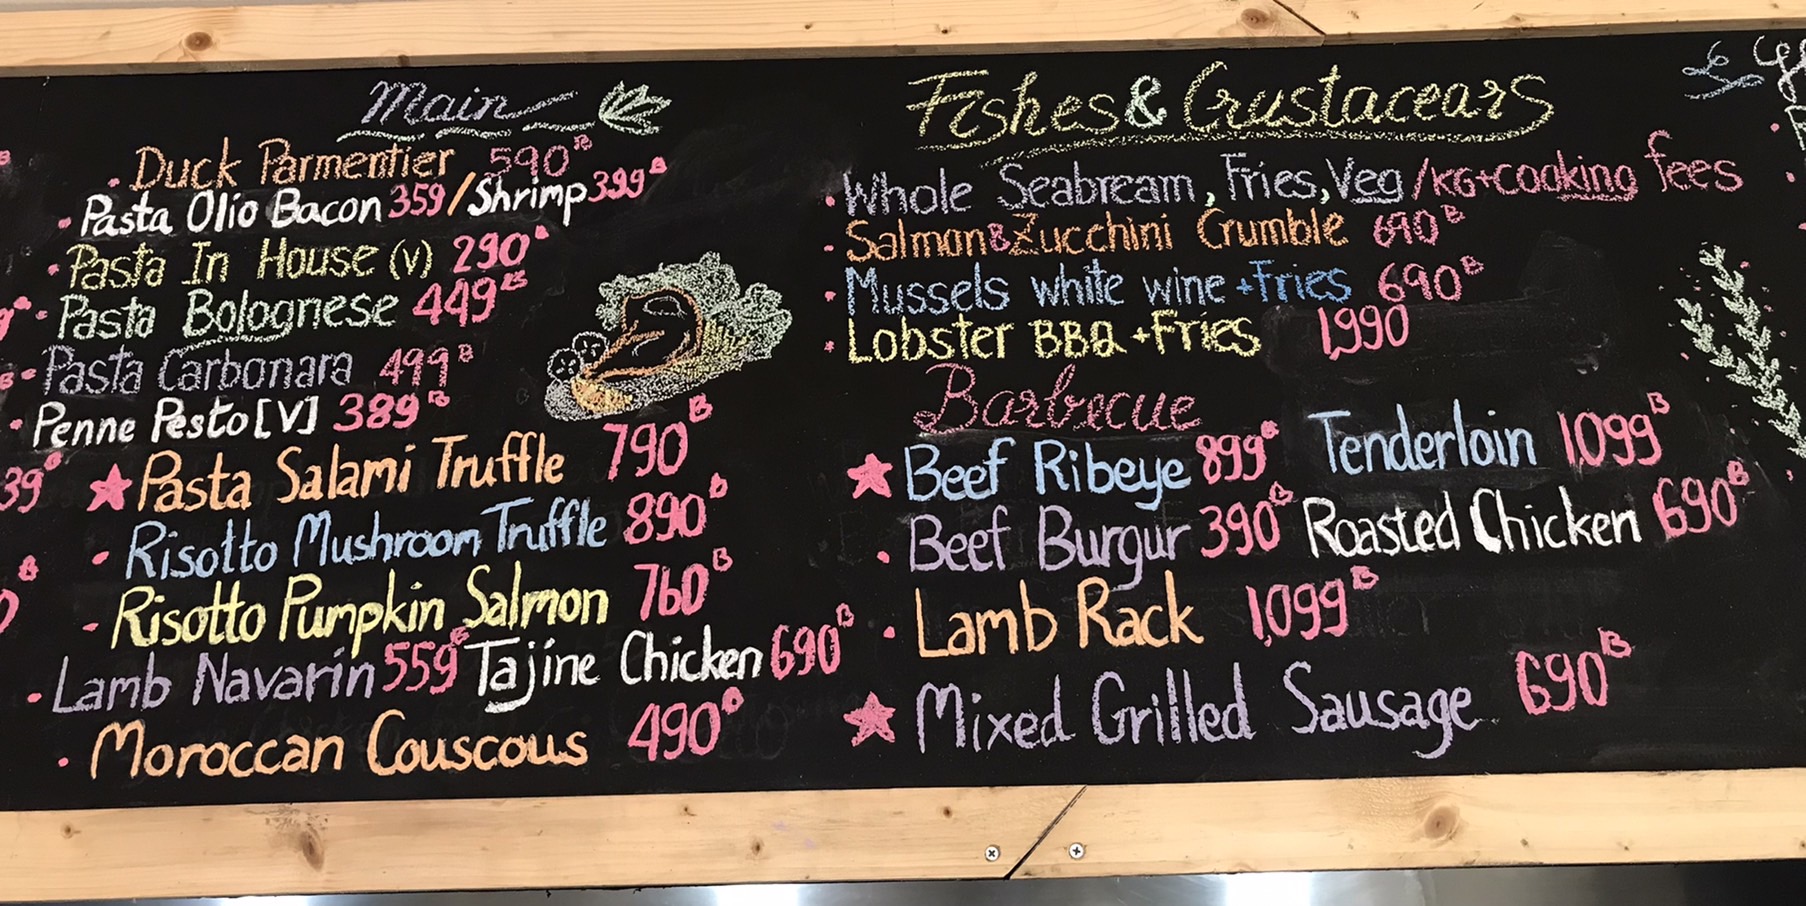 Main
Duck Parmentier 590B
Pasta Olio Bacon 359/Shrimp 399B
Pasta In House (v) 290B
Pasta Bolognese 449B
Pasta Carbonara 499B
Penne Pesto [V] 389B
Pasta Salami Truffle 790B
Risotto Mushroom Truffle 890B
Risotto Pumpkin Salmon 760B
Lamb Navarin 559B Tajine Chicken 690B
Moroccan Couscous 490B
39B
Fishes & Crustacears
Whole Seabream, Fries, Veg /KG+cooking fees
Salmon&Zucchini Crumble 690B
Mussels white wine +Fries 690B
Lobster BBQ +Fries 1,990
Barbecue
Beef Ribeye 899B Tenderloin 1,099B
Beef Burgur 390B Roasted Chicken 690B
Lamb Rack 1,099B
Mixed Grilled Sausage 690B